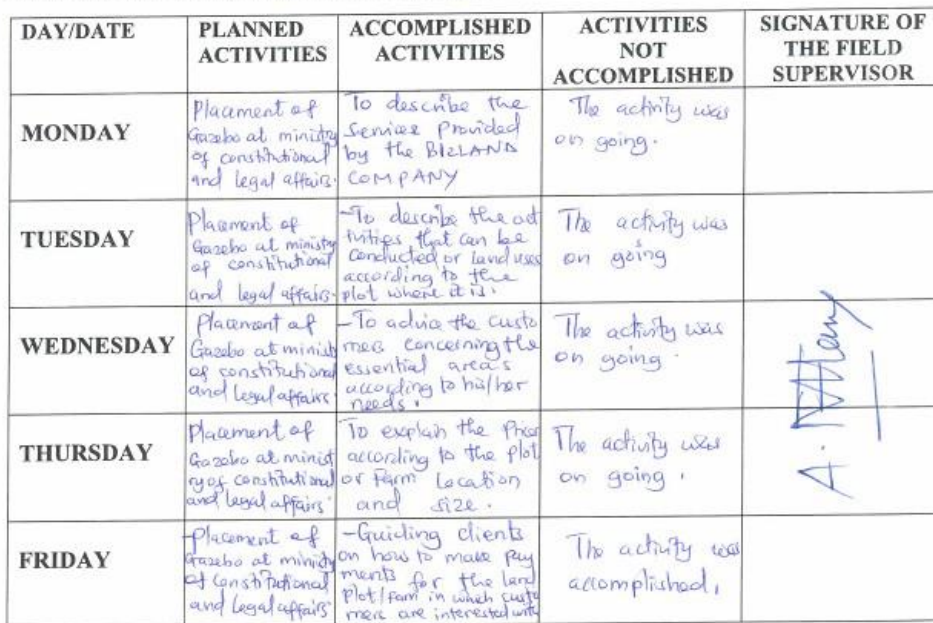 DAY/DATE
PLANNED
ACTIVITIES
ACCOMPLISHED
ACTIVITIES
ACTIVITIES
NOT
ACCOMPLISHED
SIGNATURE OF
THE FIELD
SUPERVISOR
MONDAY
Placement of
Gazebo at ministry
of constitutional
and legal affairs.
To describe the
Services Provided
by the BIZLAND
COMPANY
The activity was
on going.
TUESDAY
Placement of
Gazebo at ministry
of constitutional
and legal affairs.
-To describe the act
ivities that can be
conducted or land uses
according to the
plot where it is.
The activity was
on going
WEDNESDAY
Placement of
Gazebo at minist
of constitutional
and legal affairs
-To advice the custo
mers concerning the
essential areas
according to his/her
needs.
The activity was
on going.
THURSDAY
Placement of
Gazebo at minist
ry of constitutional
and legal affairs
To explain the Price
according to the plot
or Farm Location
and size.
The activity was
on going.
A.
FRIDAY
-Placement of
Gazebo at ministry
of constitutional
and legal affairs
-Guiding clients
on how to make pay
ments for the land
plot/farm in which custo
mers are interested with
The activity was
accomplished.